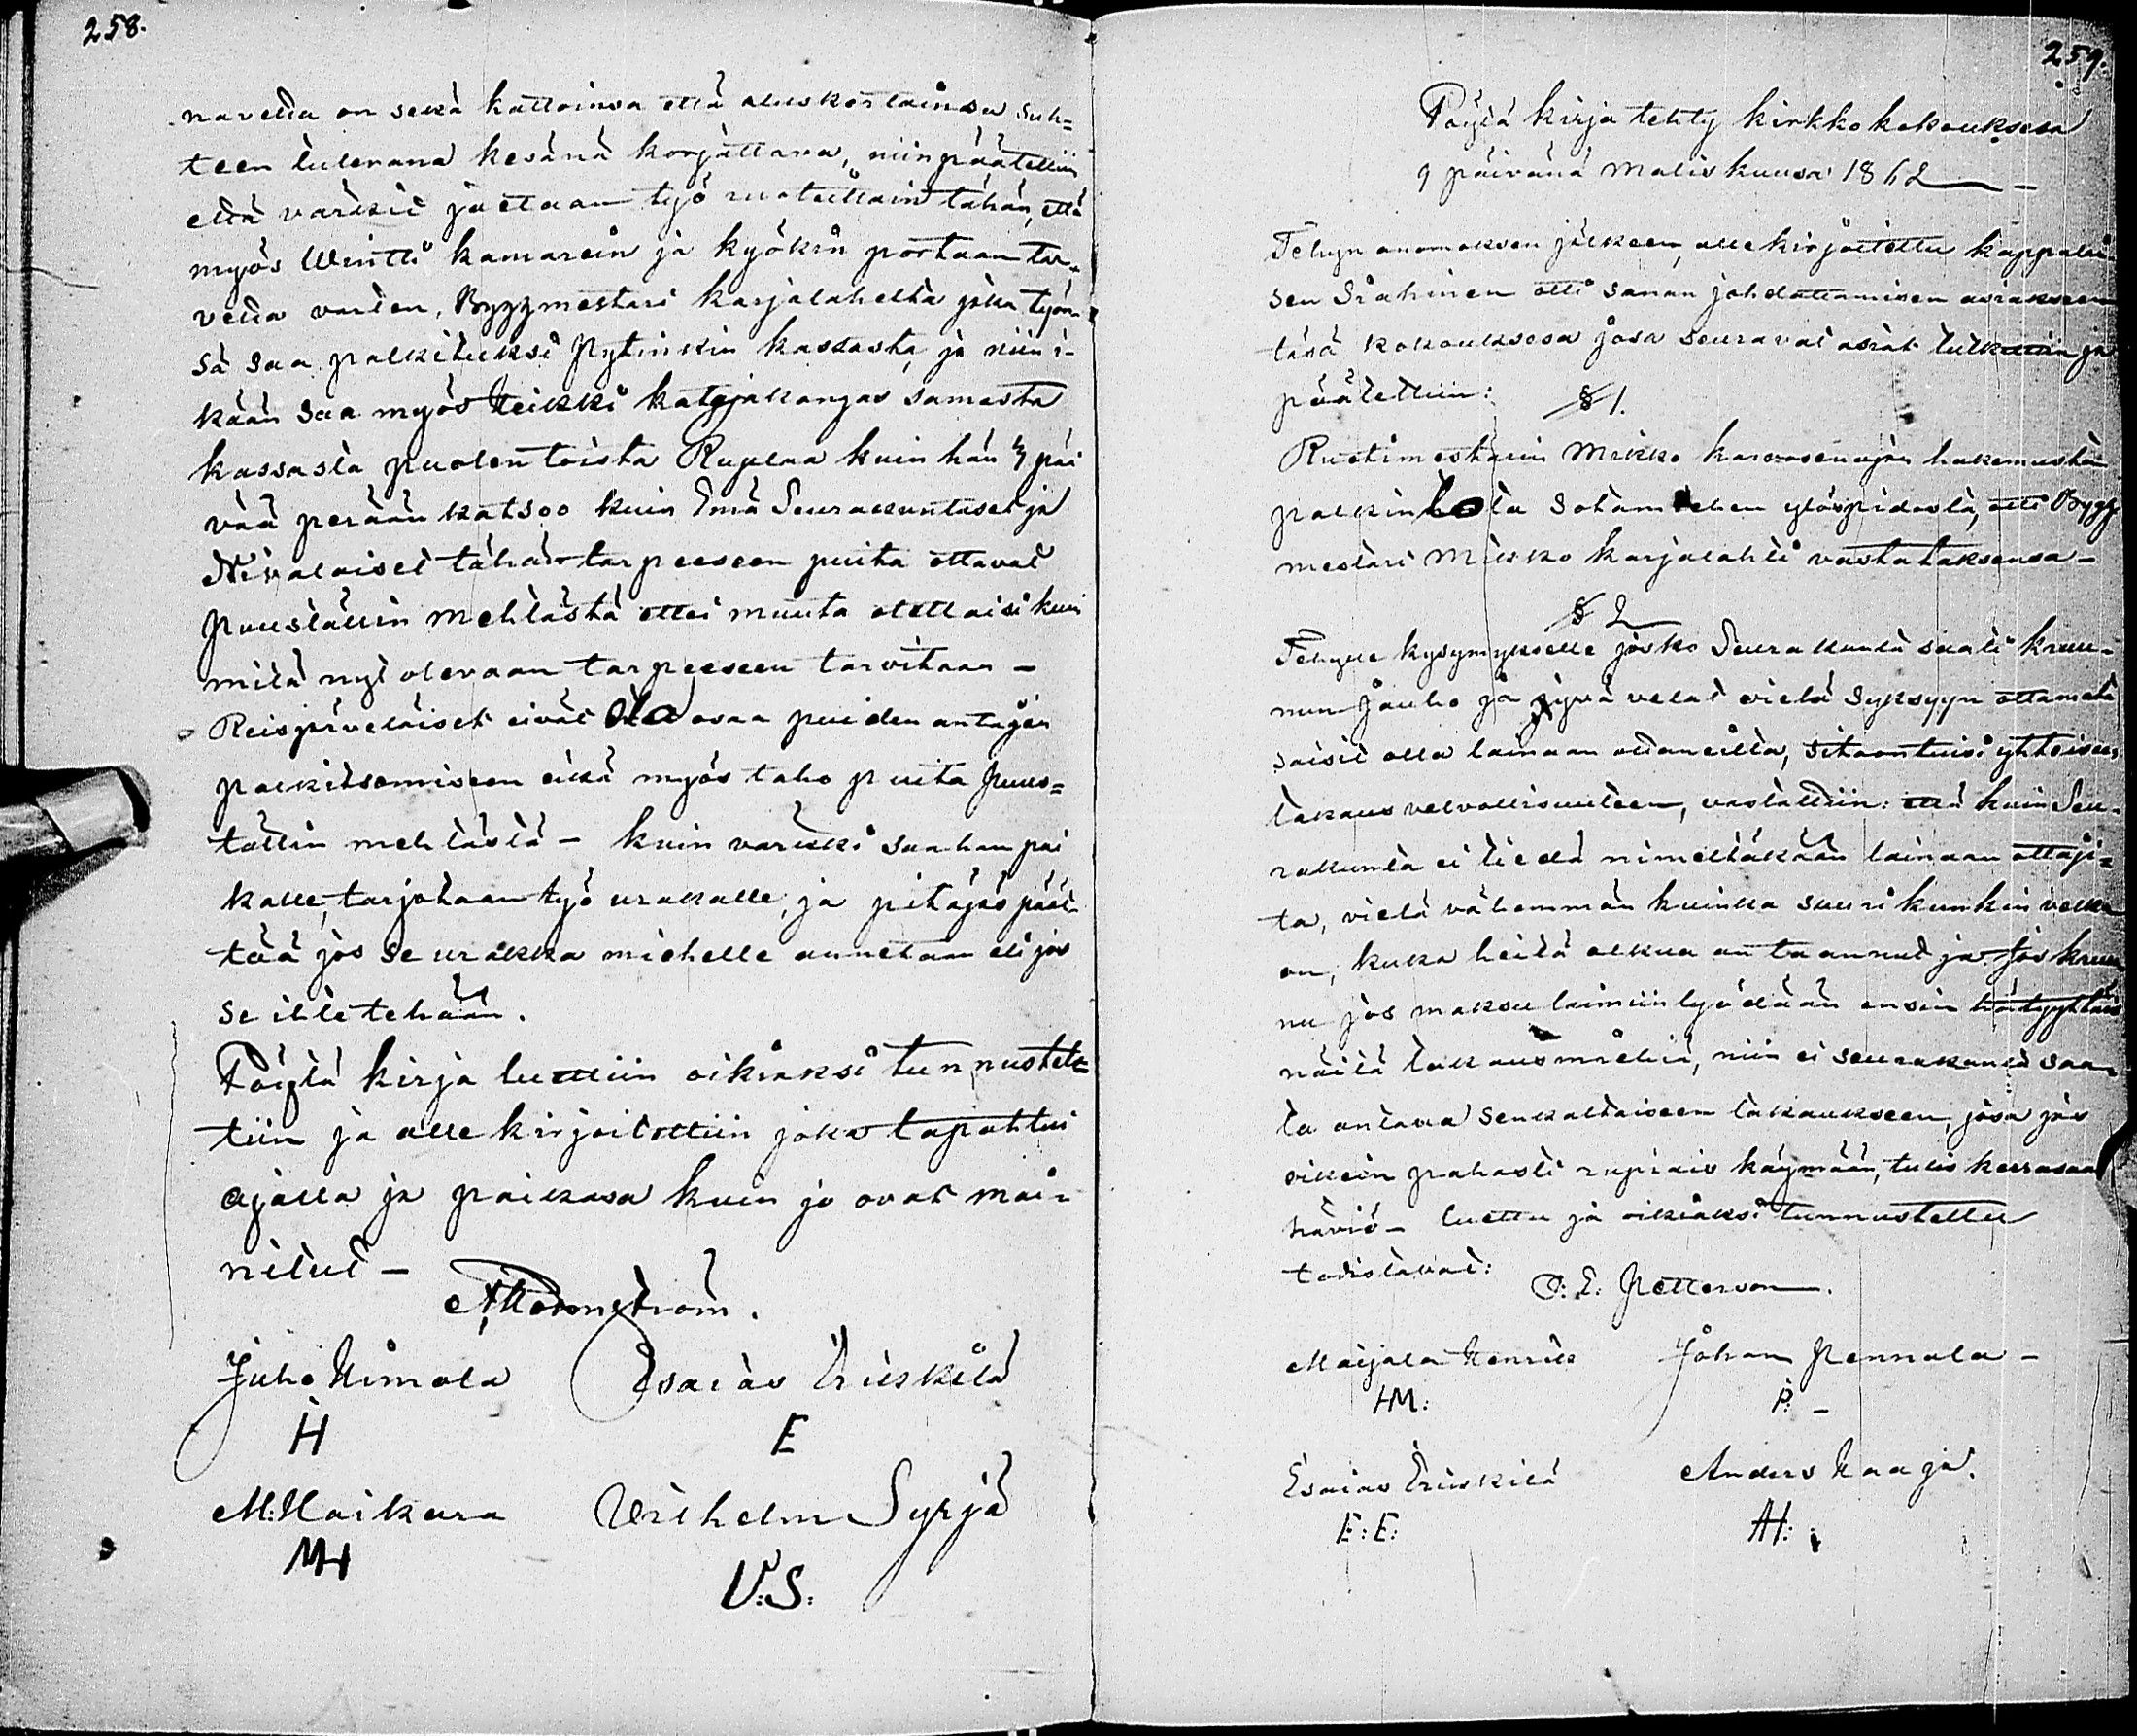 258.
navetta on sekä kattoinsa että aluskertainsa suh=
teen tulevana kesänä korjattava, niin päätettiin
että värkit jaetaan työ ruotuttain tähän, että
myös Wintti kamarein ja kyökin portaan tar-
vetta varten, Byggmestari Karjalahelta joka työn-
sä saa palkituksi Pytinkin kassasta, ja niin i-
kään saa myös Heikki Katajakangas samasta
kassasta puolen toista Ruplaa kuin hän 3 päi
vää perään katsoo kuin Emä Seurakuntaset ja
Nivalaiset tähän tarpeeseen puita ottavat
Puuställin mehtästä ettei muuta otettaisi kuin
mitä nyt olevaan tarpeeseen tarvitaan —
Reisjärveläiset eivät ota osaa puiden antajan
palkitsemiseen eikä myös taho puita Puus=
tällin mehtästä — kuin värkki saahan pai
kalle, tarjotaan työ urakalle, ja pitäjäs päät-
tää jos se urakka miehelle annetaan eli jos
se itte tehään.
Pöytä kirja luettiin oikiaksi tunnustet=
tiin ja alle kirjoitettiin joka tapahtui
ajalla ja paikasa kuin jo ovat mai=
nitut —
Juho Himola Esaias Eriskilä
H E
M: Haikara Wilhelm Syrjä
MH V:S:
259.
Pöytä kirja tehty kirkko kokouksesa
9 päivänä Maliskuusa 1862 —
Tehyn anomuksen jälkeen, alle kirjoitettu kappalai
sen Siahinen otti sanan johdattamisen asiakseen
täsä kokouksesa josa seuravat asiat tutkittiin ja
päätettiin: § 1.
Rustimestarin Mikko hakemustan
palkinnosta Sotamiehen ylöspidosta, otti Bygg
mestari Mikko Karjalahti vastataksensa —
§ 2
Tehylle kysymykselle josko Seurakunta suati kruu-
nun Jauho ja Jyvä velat vielä syksyyn ottamata
saisit olla lainaan ottaneilla, sitoontuisi yhteiseen
takaus velvollisuuteen, vastattiin: että kuin Seu-
rakunta ei tiedä nimeltäkään lainaan ottaji=
ta, vielä vähemmän kuinka suuri kunkin velka
on, kuka heitä alkua an ta annut ja jos kruu
nu jos maksu laimiin lyödään ensin
näitä takausmiehiä, niin ei seurakunta saa-
ta antaua senkaltaiseen takaukseen, josa jos
oikein pahasti rupiais käymään, tulis kerrasaan
häviö — luettu ja oikiaksi tunnustettu
todistavat:
P: E: Petterson.
Maijala Henrik Johan Pennala —
HM: P: —
Esaias Eriskilä Anders Haaja.
E: E: AH: